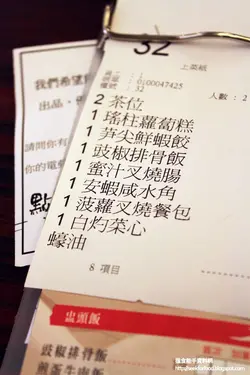 32
上菜紙
0:00047425
: 32
人數 : 2
2 茶位
1 瑤柱蘿蔔糕
1 笋尖鮮蝦餃
1 豉椒排骨飯
1 蜜汁叉燒腸
1 安蝦咸水角
1 菠蘿叉燒餐包
1 白灼菜心
蠔油
8 項目
我們希望
出品、
請問你有
你的電
點
盅頭飯
豉椒排骨飯
煎蛋牛肉飯
http://seekforfood.blogspot.com